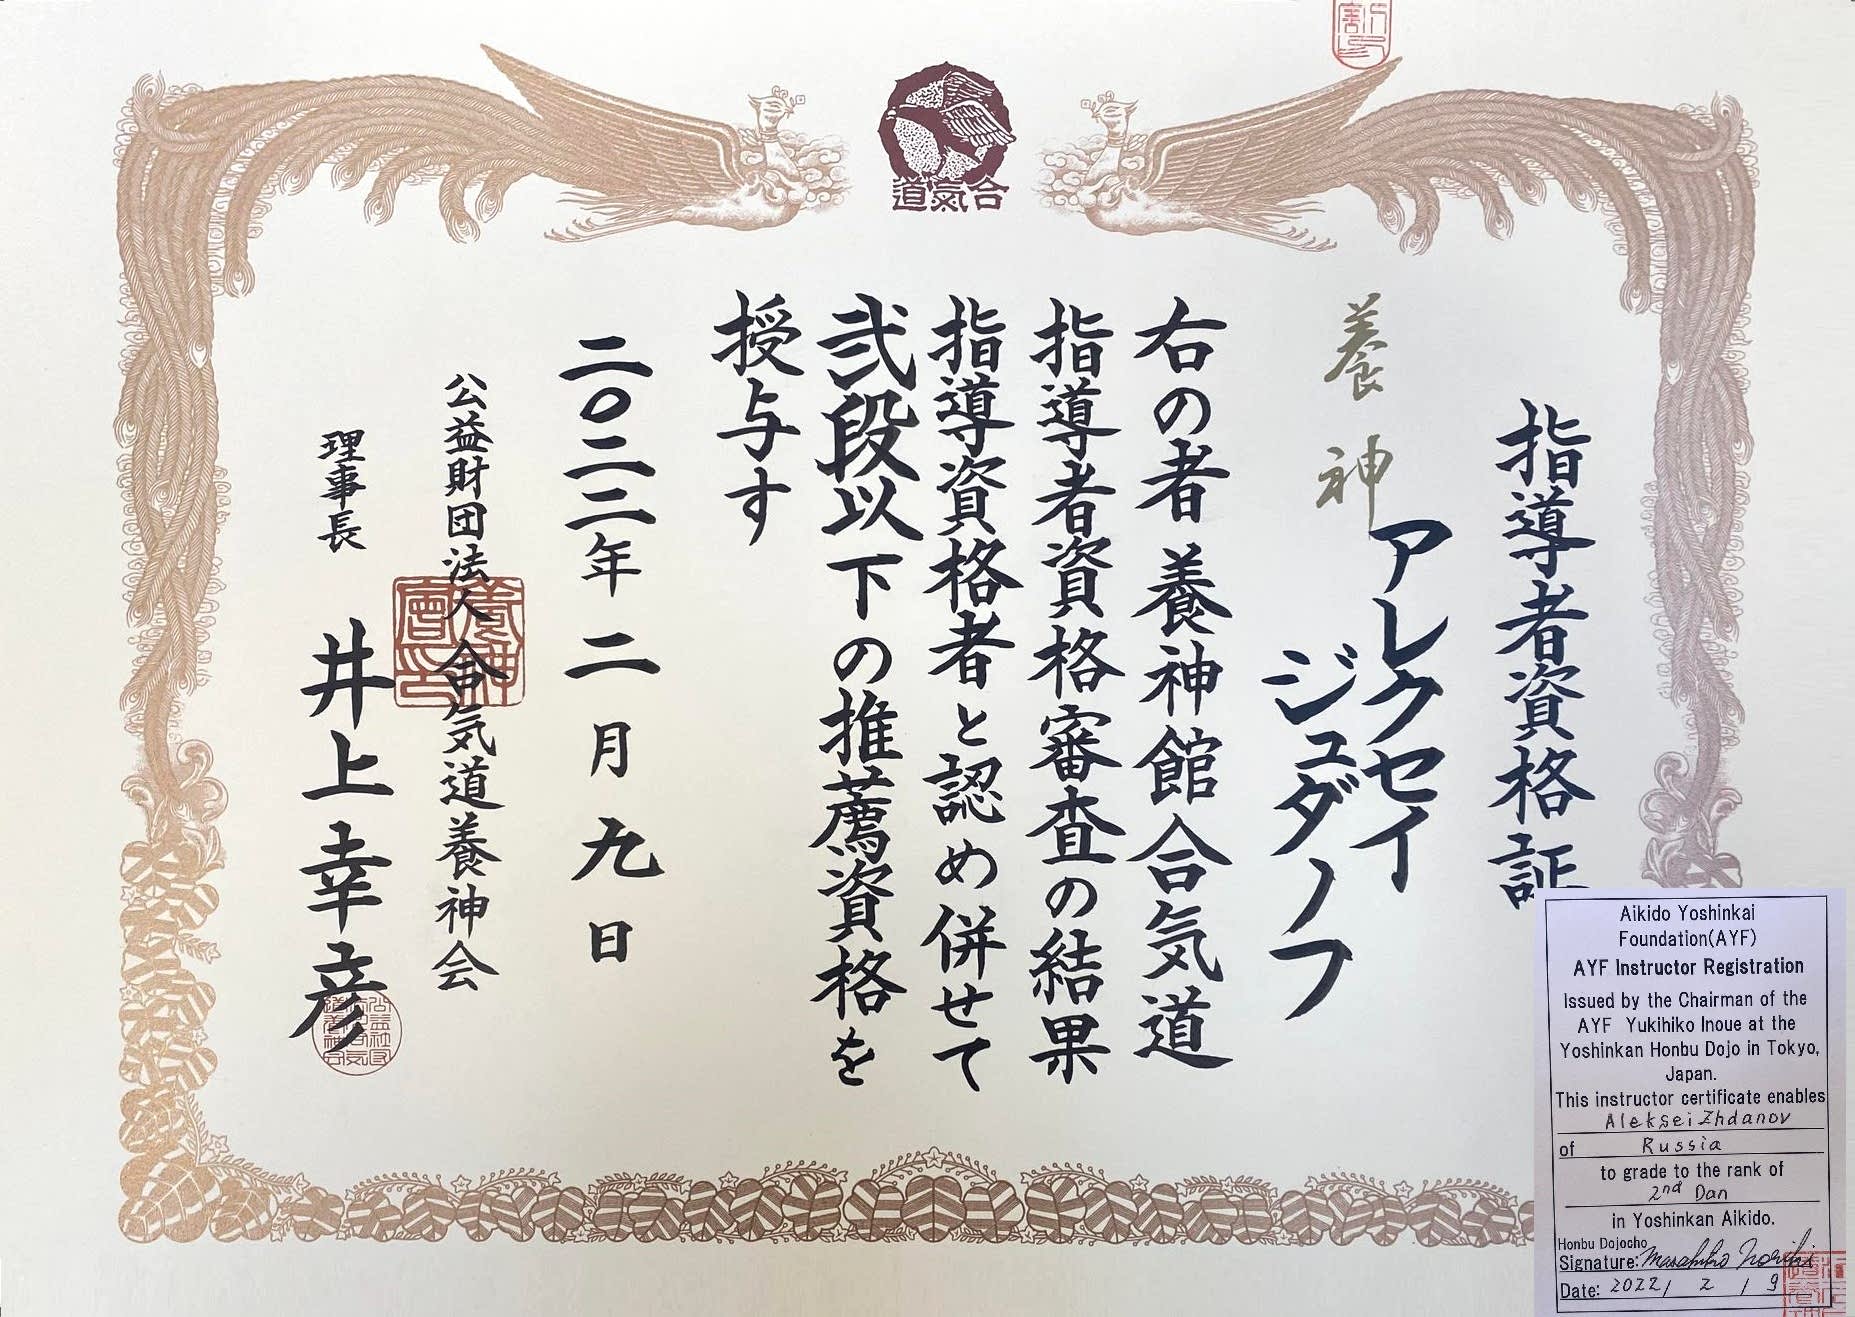 合氣道
指導者資格証
養神
アレクセイ
ジュダノフ
右の者養神館合気道
指導者資格審査の結果
指導資格者と認め併せて
弐段以下の推薦資格を
授与す
二〇二二年二月九日
公益財団法人合気道養神会
理事長 井上幸彦
Aikido Yoshinkai
Foundation(AYF)
AYF Instructor Registration
Issued by the Chairman of the
AYF Yukihiko Inoue at the
Yoshinkan Honbu Dojo in Tokyo,
Japan.
This instructor certificate enables
Aleksei Zhdanov
of Russia
to grade to the rank of
2nd Dan
in Yoshinkan Aikido.
Honbu Dojocho
Signature: Masahiko Noriki
Date: 2022/ 2 / 9